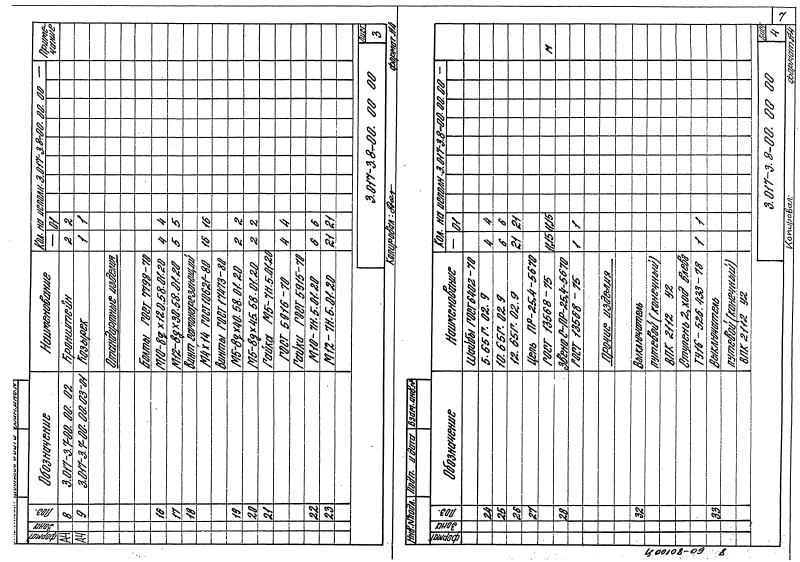 Формат
Зона
Поз.
Обозначение
Наименование
Кол. на исполн. 3.017-3.8-00. 00 00 —
— 01
Приме-
чание
А4 8 3.017-3.7-00. 00. 02 Бранштейн 2 2
А4 9 3.017-3.7-00. 00. 03-01 1 1
Стандартные изделия
Болты ГОСТ 7798-70
16 М10-8g×120.58.01.20 4 4
17 М12-8g×30.58.01.20 5 5
18 Винт самонарезающий
М4×14 ГОСТ 10621-80 16 16
Винты ГОСТ 17473-80
19 М5-8g×40.58.01.20 2 2
20 М5-8g×45.58.01.20 2 2
21 Гайка М5-7Н.5.01.20
ГОСТ 5916-70 4 4
Гайки ГОСТ 5915-70
22 М10-7Н.5.01.20 6 6
23 М12-7Н.5.01.20 21 21
3.017-3.8-00. 00 00
Лист
3
Копировал:
Формат А4
7
Инв.№ подл. Подп. и дата Взам.инв.№
Формат
Зона
Поз.
Обозначение
Наименование
Кол. на исполн. 3.017-3.8-00. 00 00 —
— 01
Шайбы ГОСТ 6402-70
24 5. 65Г. 02. 9 4 4
25 10. 65Г. 02. 9 6 6
26 12. 65Г. 02. 9 21 21
27 Цепь ПР-25,4-5670
ГОСТ 13568-75 11,15 11,15 м
28 Звено С-ПР-25,4-5670
ГОСТ 13568-75 1 1
Прочие изделия
32 Выключатель
путевой (конечный)
ВПК 2112 У2
Ступень 2, ход влево
ТУ16-526.433-78 1 1
33 Выключатель
путевой (конечный)
ВПК 2112 У2
3.017-3.8-00. 00 00
Лист
4
Копировал:
Формат А4
Ц00108-09 8